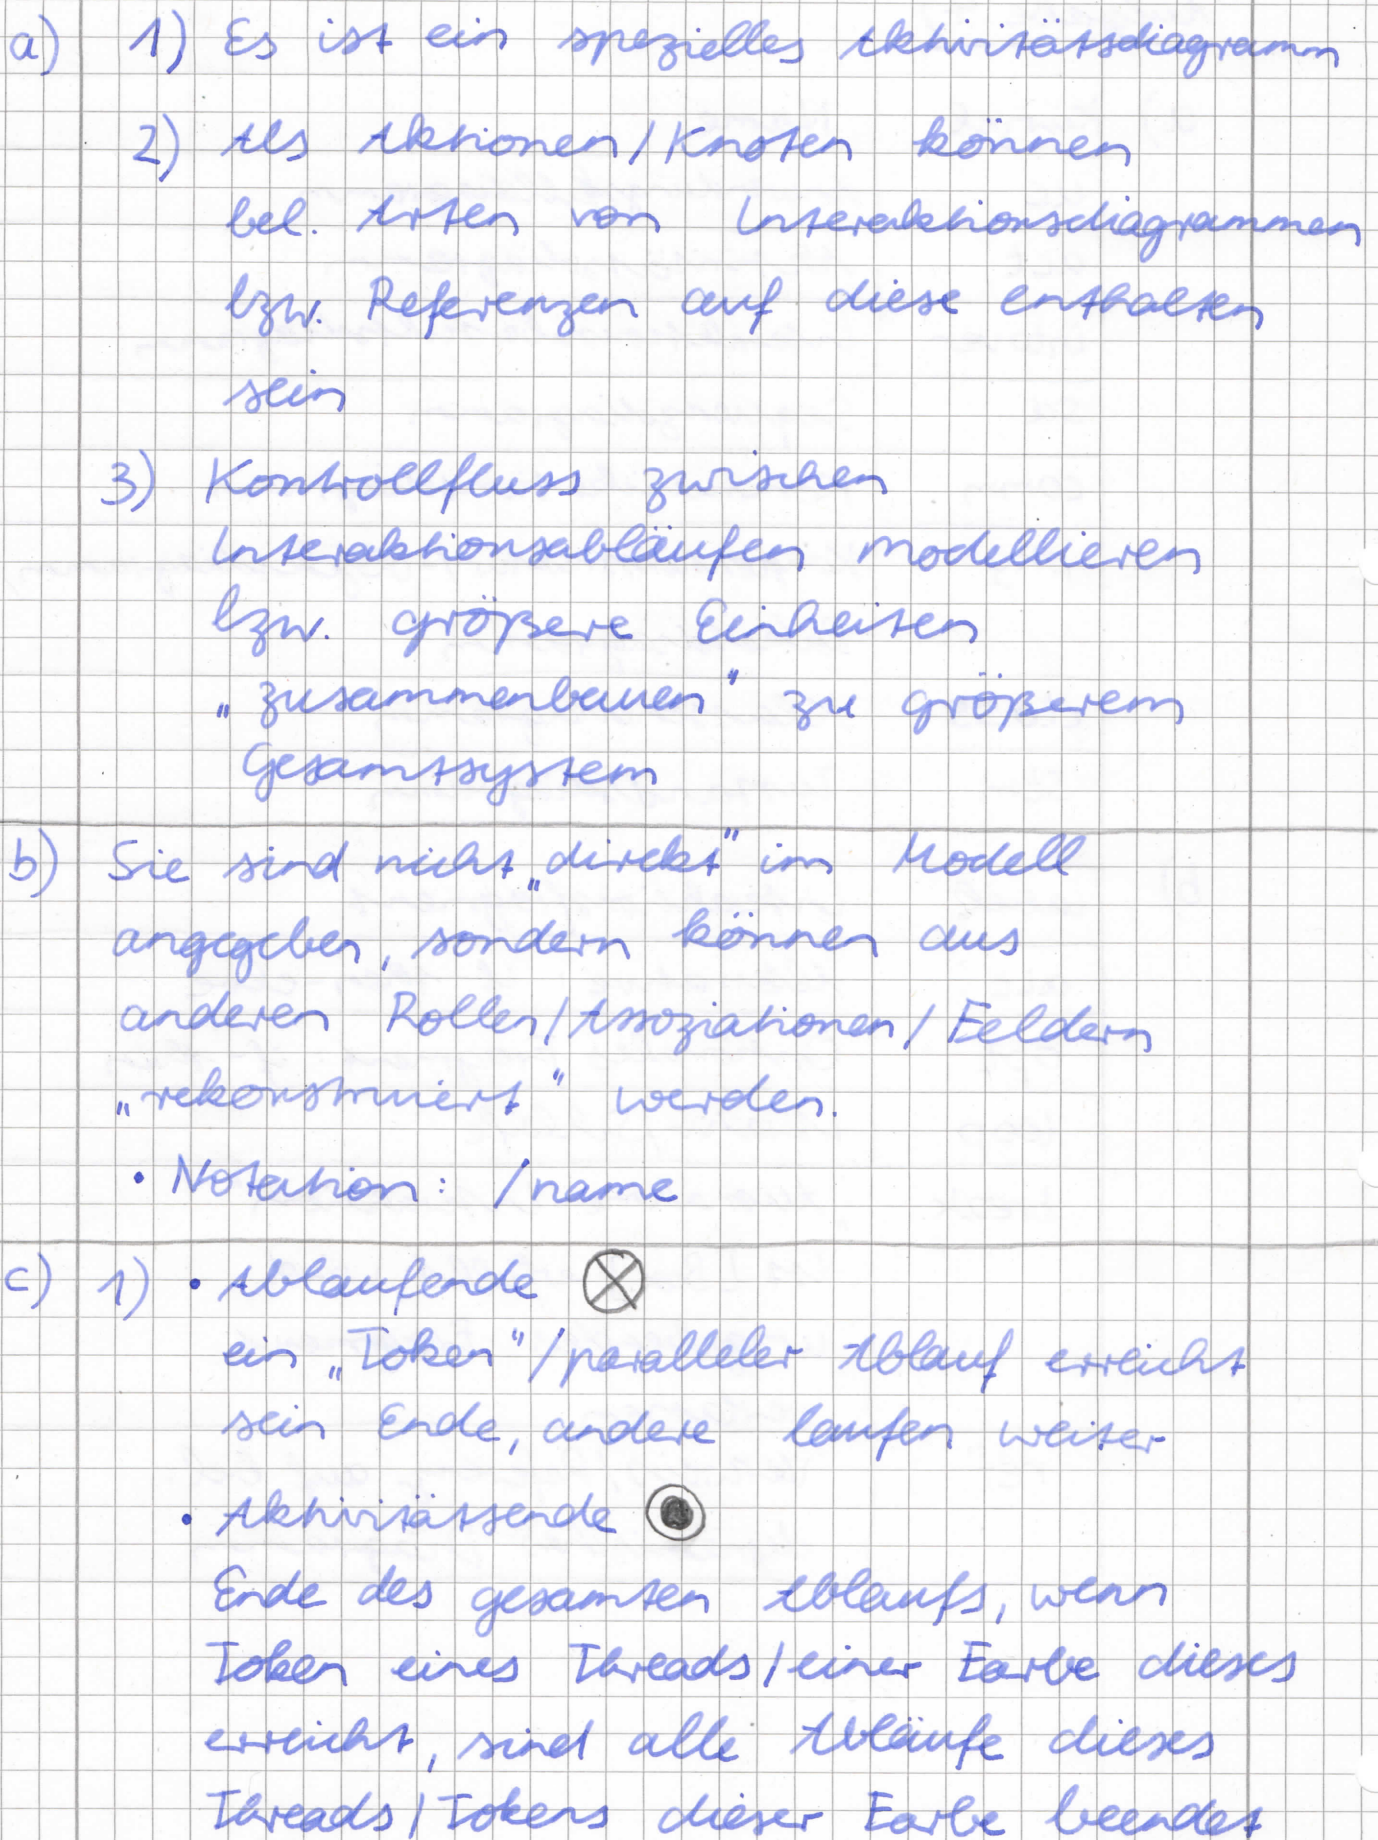 a) 1) Es ist ein spezielles Aktivitätsdiagramm
2) Als Aktionen/Knoten können
bel. Arten von Interaktionsdiagrammen
bzw. Referenzen auf diese enthalten
sein
3) Kontrollfluss zwischen
Interaktionsabläufen modellieren
bzw. größere Einheiten
„zusammenbauen" zu größerem
Gesamtsystem
b) Sie sind nicht „direkt" im Modell
angegeben, sondern können aus
anderen Rollen/Assoziationen/Feldern
„rekonstruiert" werden.
• Notation: /name
c) 1) • Ablaufende
ein „Token"/paralleler Ablauf erreicht
sein Ende, andere laufen weiter
• Aktivitätsende
Ende des gesamten Ablaufs, wenn
Token eines Threads/einer Farbe dieses
erreicht, sind alle Abläufe dieses
Threads/Tokens dieser Farbe beendet